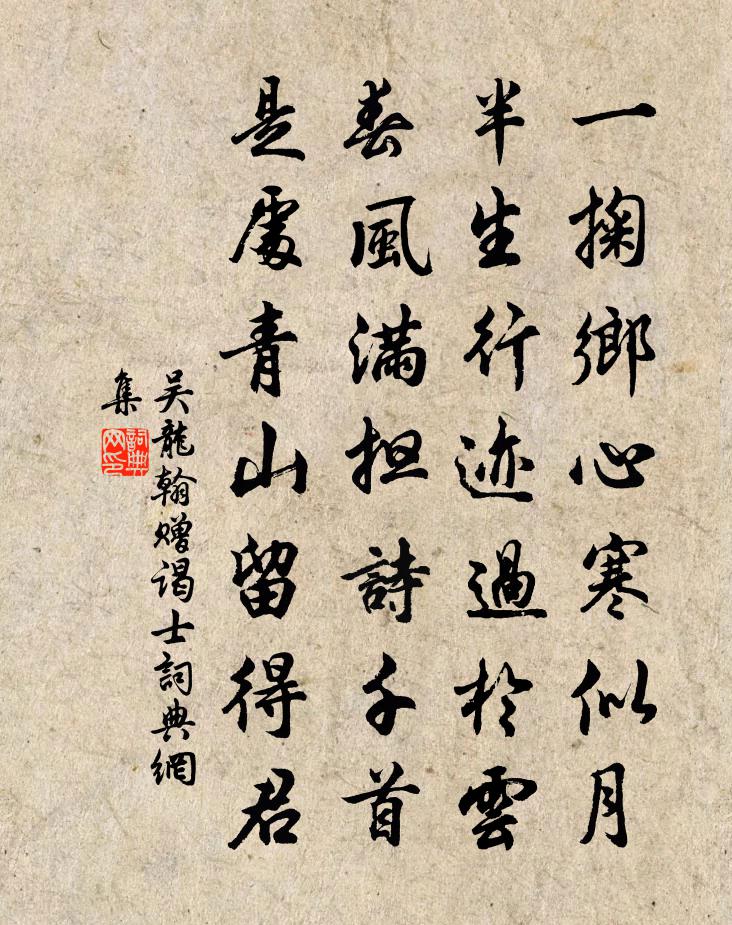 一掬鄉心寒似月
半生行迹過於雲
春風滿担詩千首
是處青山留得君
吴龍翰贈谒士詞典網
集
詞典
网印